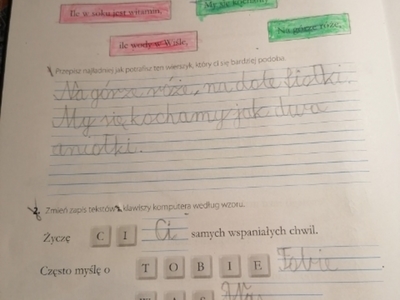 Ile w soku jest witamin,
My się kochamy
ile wody w Wiśle,
Na górze róże,
Przepisz najładniej jak potrafisz ten wierszyk, który ci się bardziej podoba.
Na górze róże, na dole fiołki.
My się kochamy jak dwa
aniołki.
2. Zmień zapis tekstów z klawiszy komputera według wzoru.
Życzę C I Ci samych wspaniałych chwil.
Często myślę o T O B I E Tobie
W A S Was